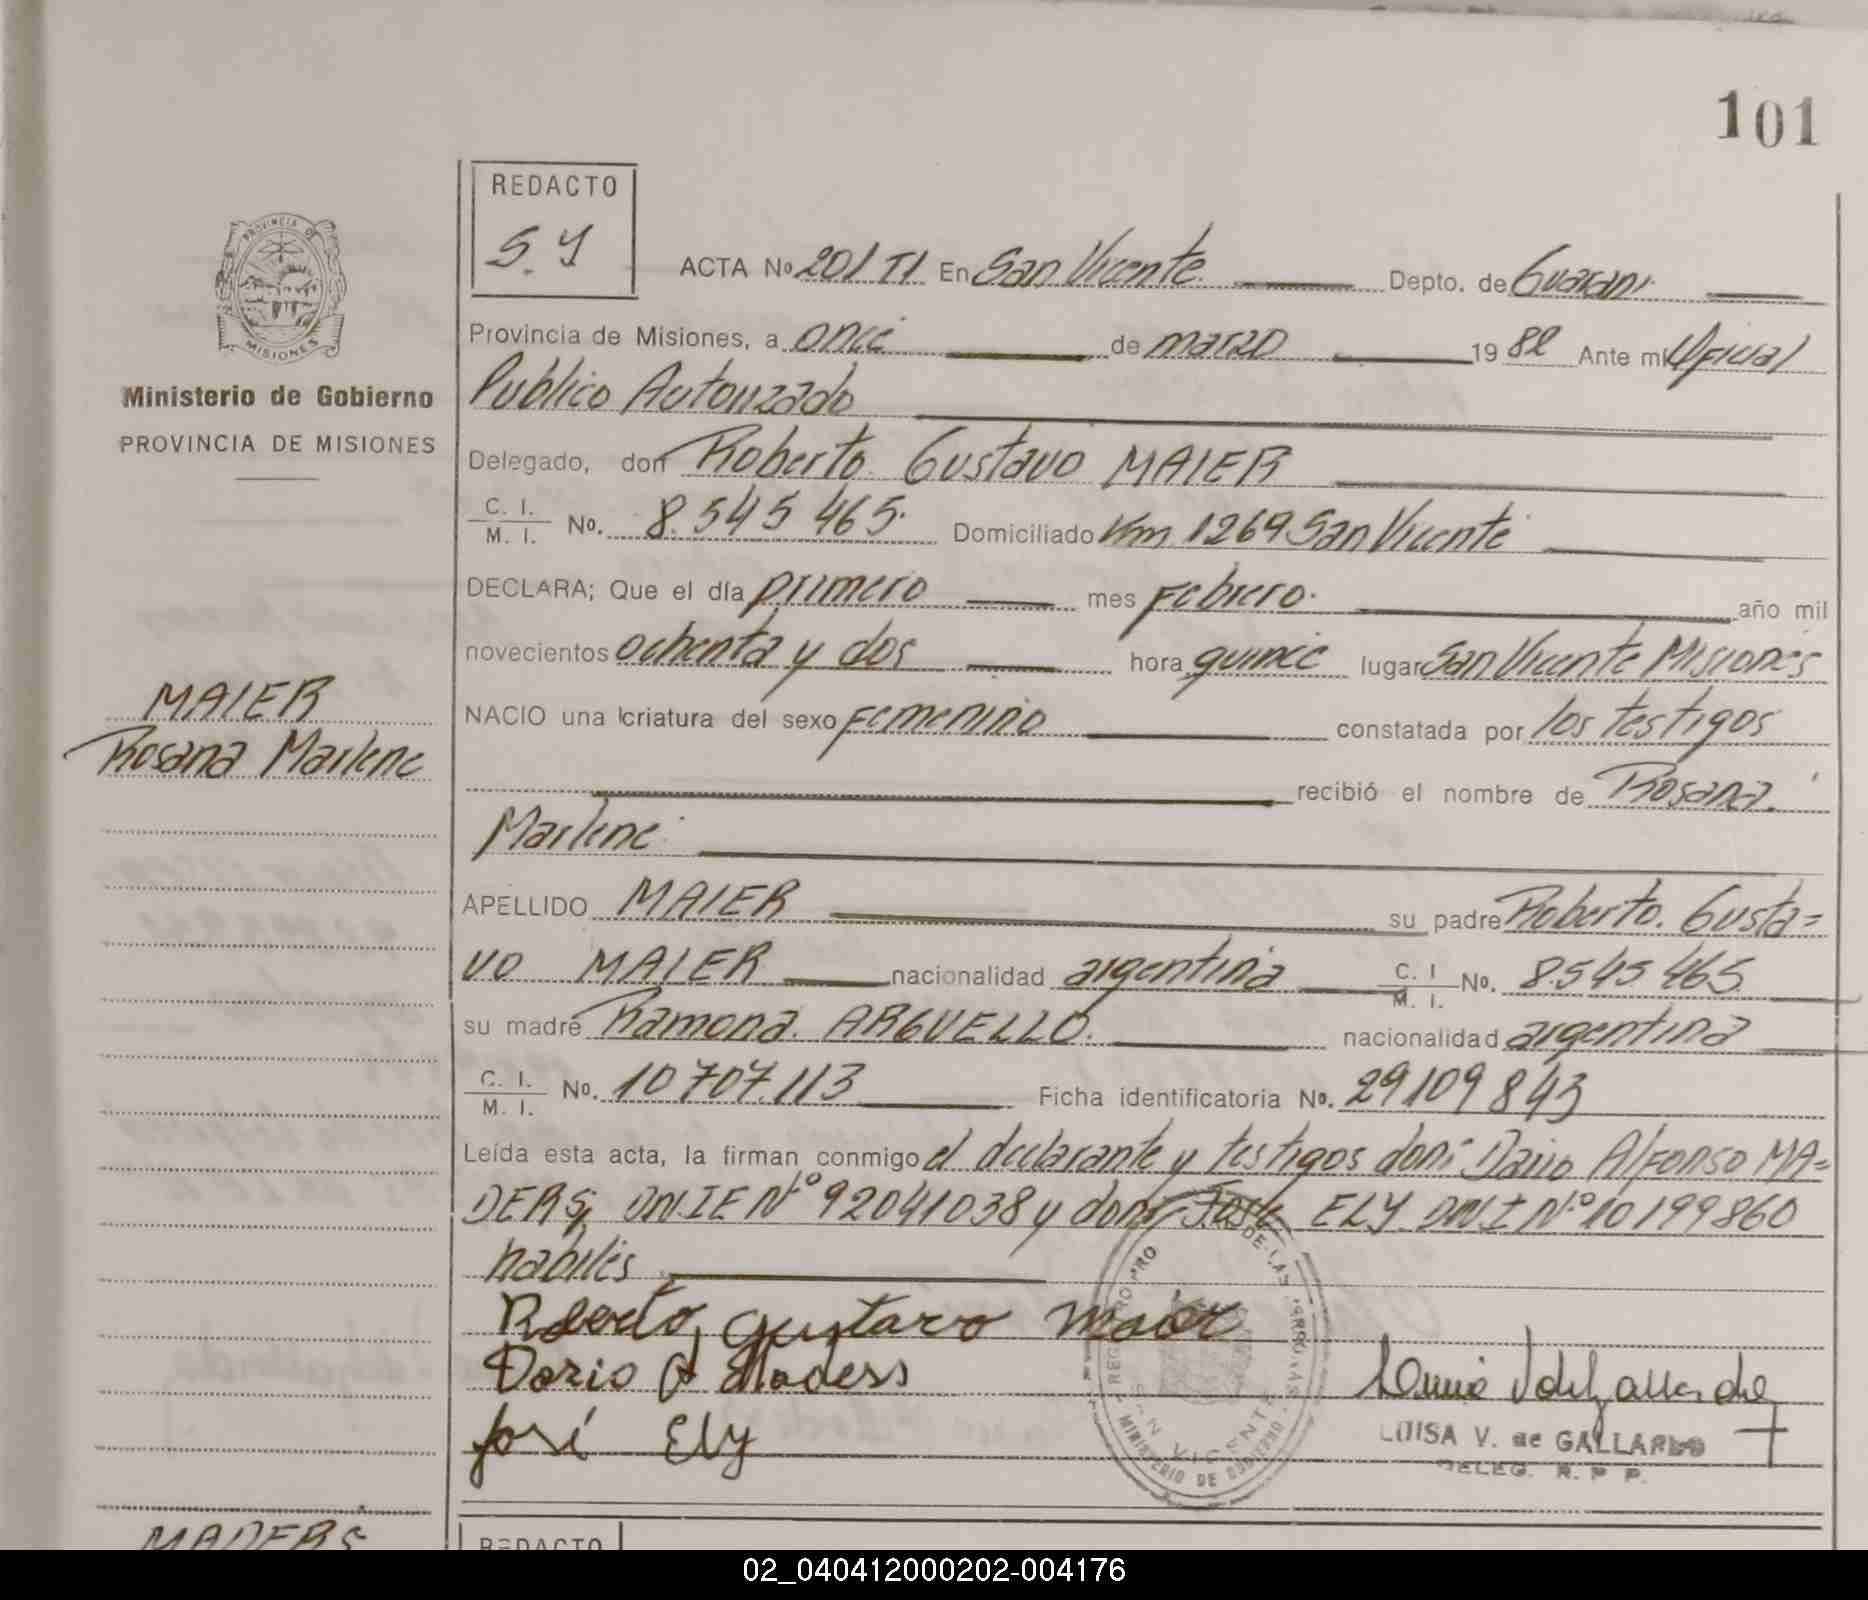 101
REDACTO
S. Y
ACTA Nº 201 TI En San Vicente Depto. de Guarani
Provincia de Misiones, a once de marzo 19 82 Ante mi Oficial
Publico Autorizado
Delegado, don Roberto Gustavo MAIER
C. I.
M. I. No. 8.545 465. Domiciliado Km 1269 San Vicente
DECLARA; Que el día primero mes Febrero. año mil
novecientos ochenta y dos hora quince lugar San Vicente Misiones
NACIO una criatura del sexo femenino constatada por los testigos
recibió el nombre de Rosana
Marlene
APELLIDO MAIER su padre Roberto. Gusta=
vo MAIER nacionalidad argentina C. I M. I. No. 8.545 465
su madre Ramona. ARGUELLO. nacionalidad argentina
C. I. M. I. No. 10 707.113 Ficha identificatoria No. 29109843
Leída esta acta, la firman conmigo el declarante y testigos don: Dario Alfonso MA=
DERS; DNIE Nº 92041038 y don: José ELY DNI Nº 10199860
habiles
Roberto Gustavo Maier
Dario A Maders
José Ely
LUISA V. de GALLARDO
DELEG. R. P. P.
SAN VICENTE
MINISTERIO DE GOBIERNO
PROVINCIA DE
MISIONES
Ministerio de Gobierno
PROVINCIA DE MISIONES
MAIER
Rosana Marlene
MADERS
REDACTO
02_040412000202-004176